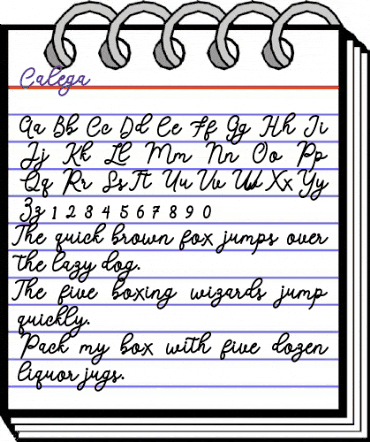 Calega
Aa Bb Cc Dd Ee Ff Gg Hh Ii
Jj Kk Ll Mm Nn Oo Pp
Qq Rr Ss Tt Uu Vv Ww Xx Yy
Zz 1 2 3 4 5 6 7 8 9 0
The quick brown fox jumps over
the lazy dog.
The five boxing wizards jump
quickly.
Pack my box with five dozen
liquor jugs.